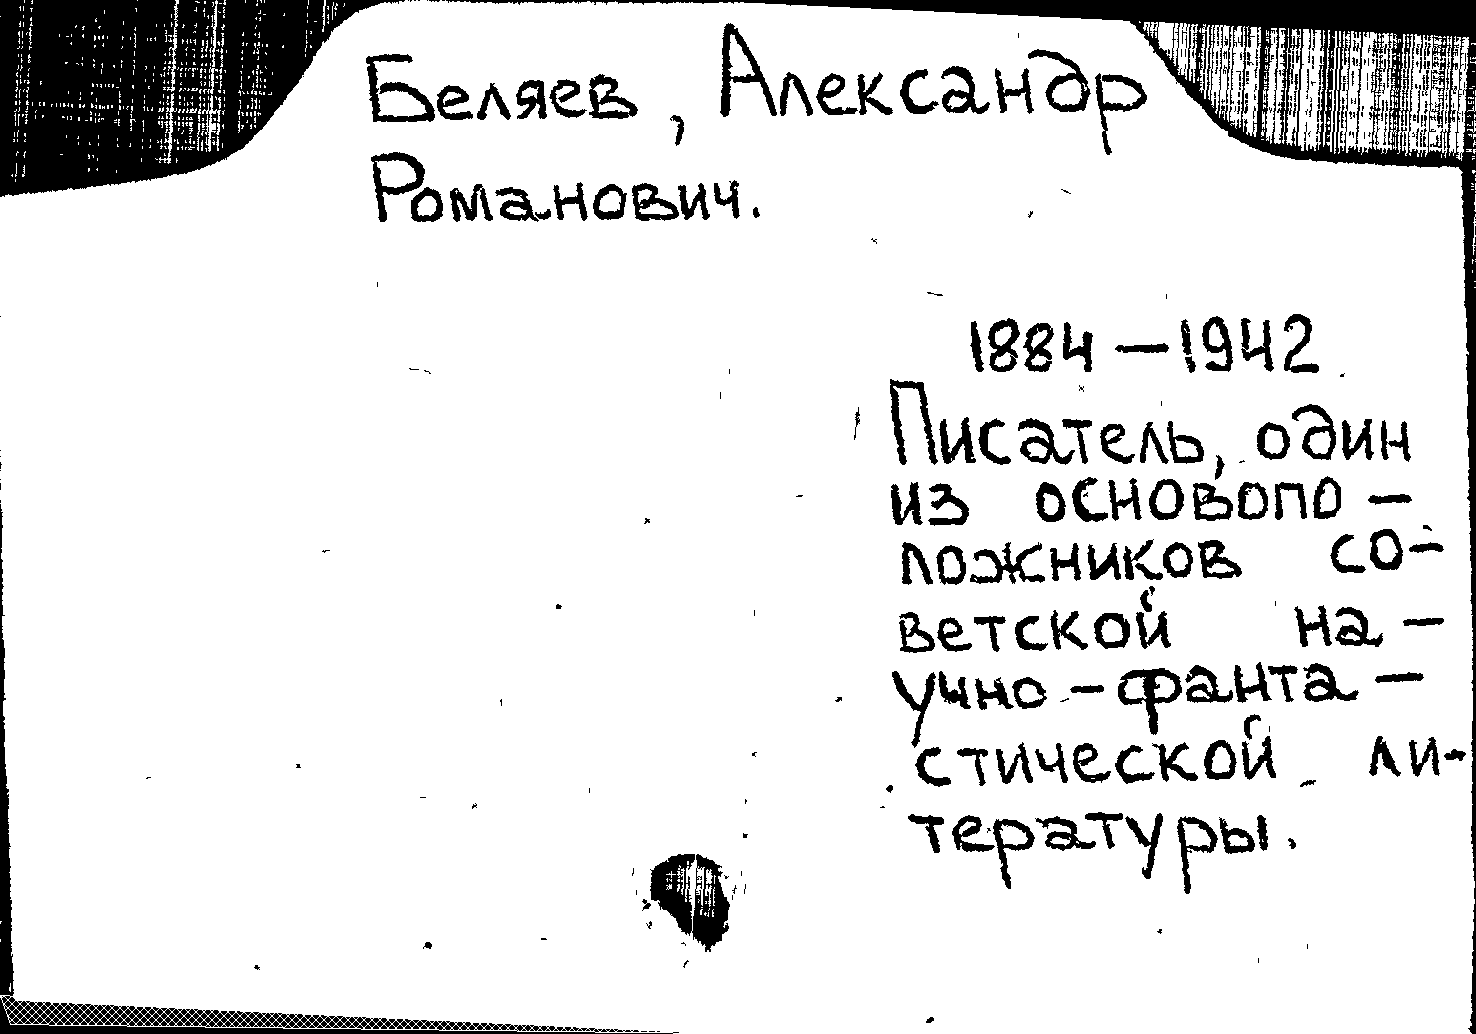 Беляев, Александр
Романович.
1884 – 1942
Писатель, один
из основопо –
ложников со –
ветской на –
учно – фанта –
стической ли-
тературы.